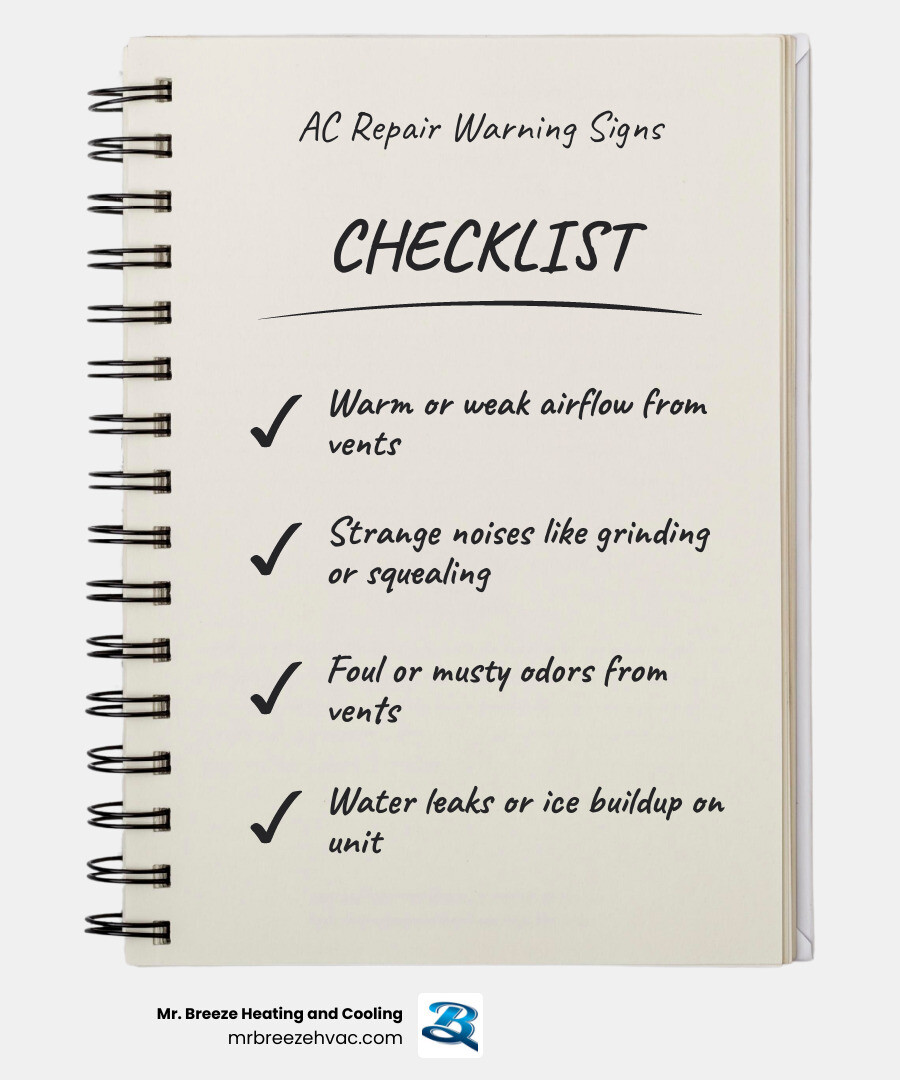 AC Repair Warning Signs
CHECKLIST
Warm or weak airflow from
vents
Strange noises like grinding
or squealing
Foul or musty odors from
vents
Water leaks or ice buildup on
unit
Mr. Breeze Heating and Cooling
mrbreezehvac.com